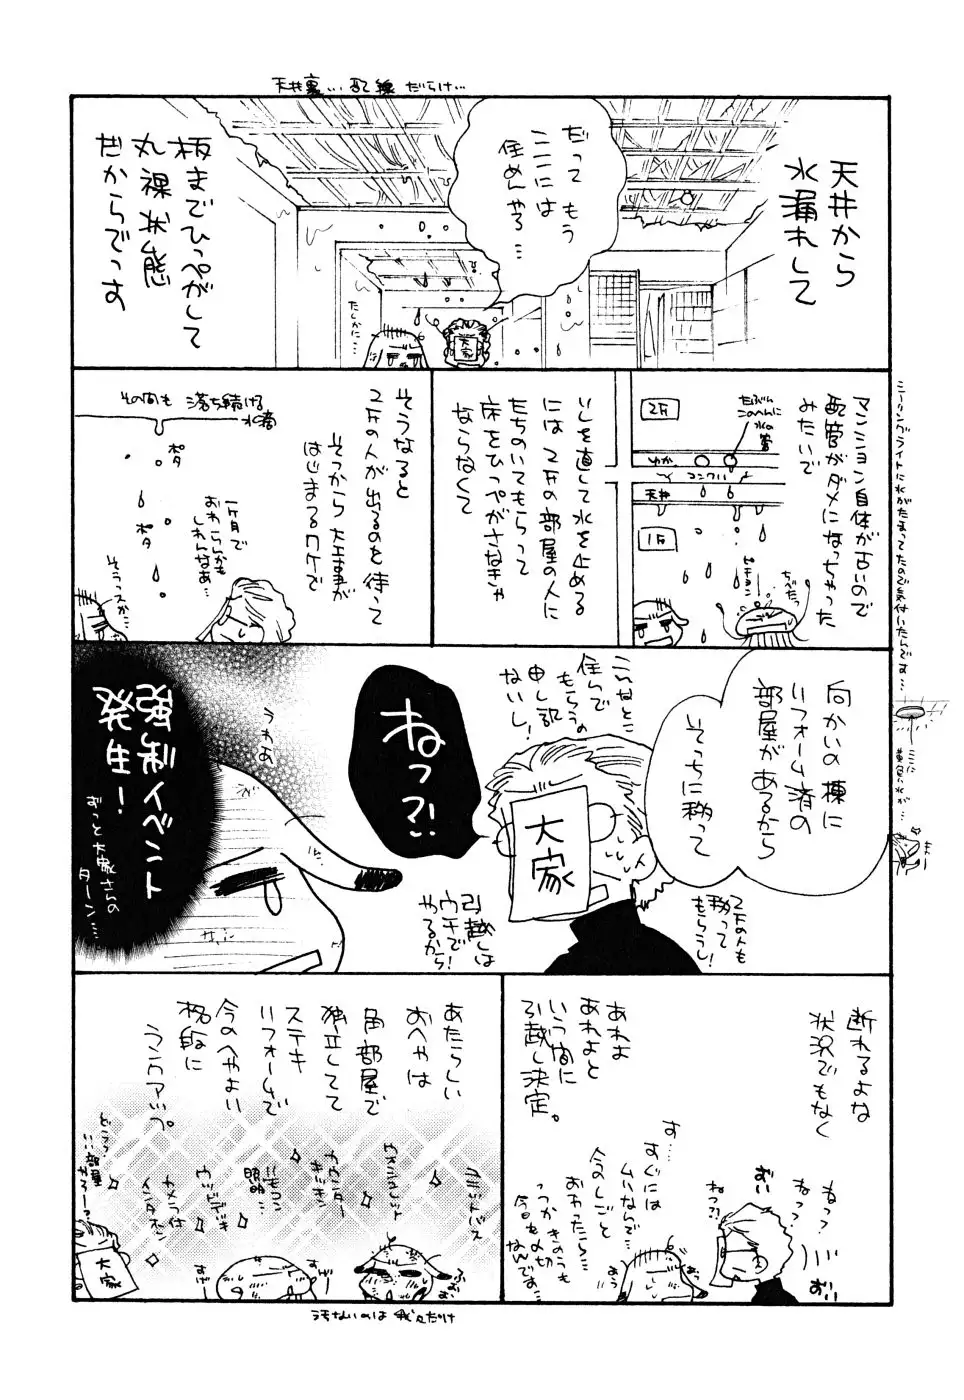 天井裏…配線だらけ…
天井から
水漏れして
だって もう
ここには
住めんやろ…
板までひっぺがして
丸裸状態
だからでっす
たしかに…
大家
マンション自体が古いので
配管がダメになっちゃった
みたいで
2F
たぶん
このへんに
水の管
ゆか
コンクリ
天井
1F
ピチョン
ちべたっ
シーリングライトに水がたまってたので気付いたんです…
ここに
黄色い水が…
いしを直して水を止める
には2Fの部屋の人に
たちのいてもらって
床をひっぺがさなきゃ
ならなくて
そうなると
2Fの人が出るのを待って
そっから大工事が
はじまるワケで
その間も 落ち続ける
水滴
ポタ
ポタ
一ヶ月で
おわらんかも
しれんなあ…
そうっスか…
向かいの棟に
リフォーム済の
部屋があるから
そっちに移って
2Fの人も
移って
もらうし!
こんなとこ
住んで
もらうの
申し訳
ないし!
大家
引越しは
ウチで
やるから!
ねっ?!
うわあ
強制イベント
発生!
ずっと大家さんの
ターン……
断れるよな
状況でもなく
ねっ?
ねっ?
ねっ?!
おい
おい
す……
すぐには
ムリなんで…
今のしごと
おわったら…
っつかきのうも
今日も〆切
なんですよ…
おう
あれよ
あれよと
いう間に
引越し決定。
あたらしい
おへやは
角部屋で
独立してて
ステキ
リフォームで
今のへやよい
格段に
ランクアップ。
カウンター
キッチン
リモコン
照明
ウッドデッキ
カメラ付
インタホン
どうっ?
…部屋
かろー?
大家
すげー
すげ
汚ないのは 我々だけ